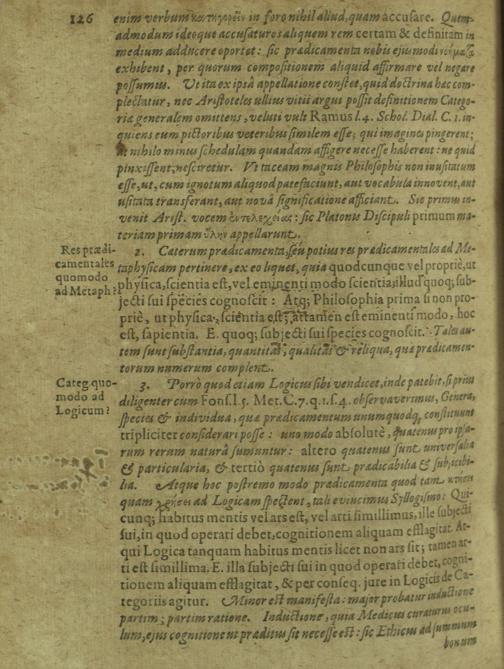 126
enim verbum κατηγορεῖν in foro nihil aliud, quam accusare. Quem-
admodum ideoque accusaturos aliquem rem certam & definitam in
medium adducere oportet: sic prædicamenta nobis ejusmodi
exhibent, per quorum compositionem aliquid affirmare vel negare
possumus. Ut ita ex ipsâ appellatione constet, quid doctrina hæc com-
plectatur, nec Aristoteles ullius vitii argui possit definitionem Catego-
riæ generalem omittens, veluti vult Ramus l. 4. Schol. Dial. C. 1. in-
quiens eum pictoribus veteribus similem esse; qui imagines pingerent;
at nihilo minus schedulam quandam affigere necesse haberent: ne quid
pinxissent, nesciretur. Ut taceam magnis Philosophis non inusitatum
esse, ut, cum ignotum aliquod patefaciunt, aut vocabula innovent, aut
usitata transferant, aut novâ significatione afficiant. Sic primus in-
venit Arist. vocem ἐντελεχείας: sic Platonis Discipuli primum ma-
teriam primam ὕλην appellarunt.
Res prædi-
camentales
quomodo
ad Metaph?
2. Cæterum prædicamenta, seu potius res prædicamentales ad Me-
taphysicam pertinere, ex eo liquet, quia quodcunque vel propriè, ut
physica, scientia est, vel eminenti modo scientia, illud quoq; sub-
jecti sui species cognoscit: Atq; Philosophia prima si non pro-
priè, ut physica, scientia est; attamen est eminenti modo, hoc
est, sapientia. E. quoq; subjecti sui species cognoscit. Tales au-
tem sunt substantia, quantitas, qualitas & reliqua, quæ prædicamen-
torum numerum complent.
Categ. quo-
modo ad
Logicum?
3. Porrò quod etiam Logicus sibi vendicet, inde patebit, si prius
diligenter cum Fons. l. 5. Met. C. 7. q. 1. s. 4. observaverimus, Genera,
species & individua, quæ prædicamentum unumquodq; constituunt
tripliciter considerari posse: uno modo absolutè, quatenus pro ipsa-
rum rerum naturâ sumuntur: altero quatenus sunt universalia
& particularia, & tertiò quatenus sunt prædicabilia & subjicibi-
lia. Atque hoc postremo modo prædicamenta quod tam
quam χρήσει ad Logicam spectent, tali evincimus Syllogismo: Qui-
cunq; habitus mentis vel ars est, vel arti simillimus, ille subjecti
sui, in quod operari debet, cognitionem aliquam efflagitat. At-
qui Logica tanquam habitus mentis licet non ars sit; tamen ar-
ti est simillima. E. illa subjecti sui in quod operari debet, cogni-
tionem aliquam efflagitat, & per conseq. jure in Logicis de Ca-
tegoriis agitur. Minor est manifesta: major probatur inductione
partim; partim ratione. Inductione, quia Medicus curaturus ocu-
lum, ejus cognitione ut præditus sit necesse est: sic Ethicus ad summum
bonum